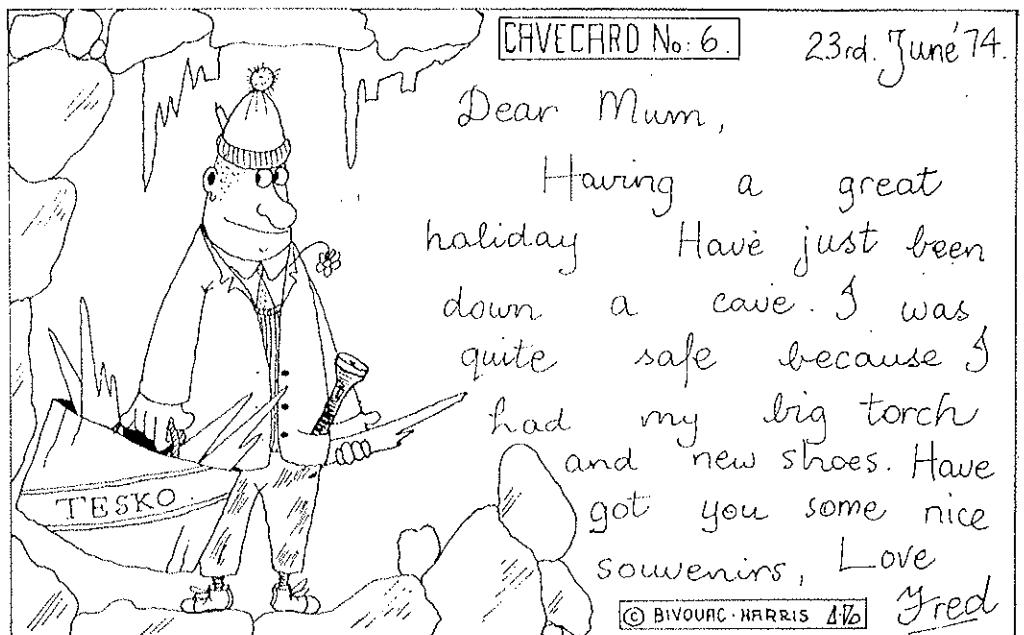 CAVECARD No: 6.
23rd. June '74.
Dear Mum,
Having a great
holiday Have just been
down a cave. I was
quite safe because I
had my big torch
and new shoes. Have
got you some nice
souvenirs, Love
Fred
TESKO
© BIVOUAC·HARRIS